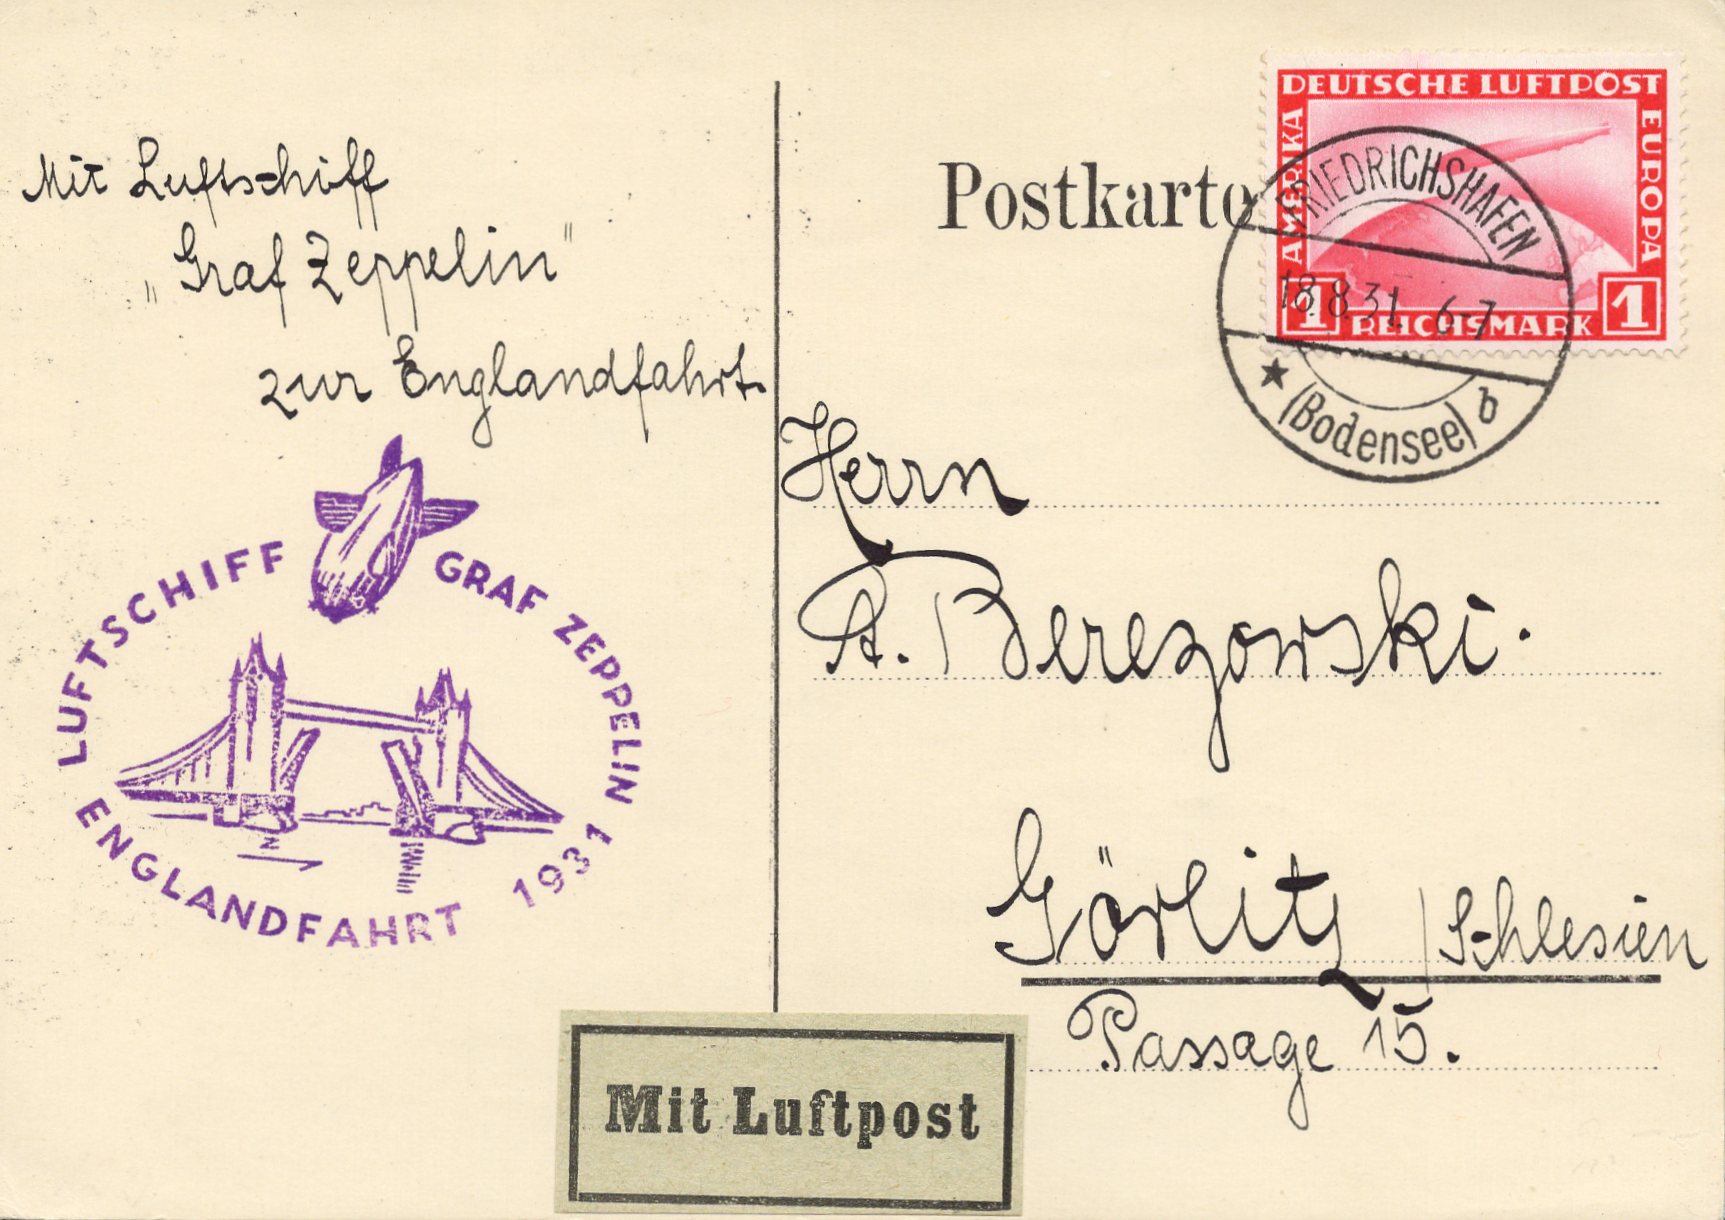 Mit Luftschiff
„Graf Zeppelin"
zur Englandfahrt.
LUFTSCHIFF GRAF ZEPPELIN
ENGLANDFAHRT 1931
Postkarte
DEUTSCHE LUFTPOST
AMERIKA
EUROPA
1 REICHSMARK 1
FRIEDRICHSHAFEN
18.8.31. 6-7
★ (Bodensee) b
Herrn
A. Berezowski.
Görlitz / Schlesien
Passage 15.
Mit Luftpost